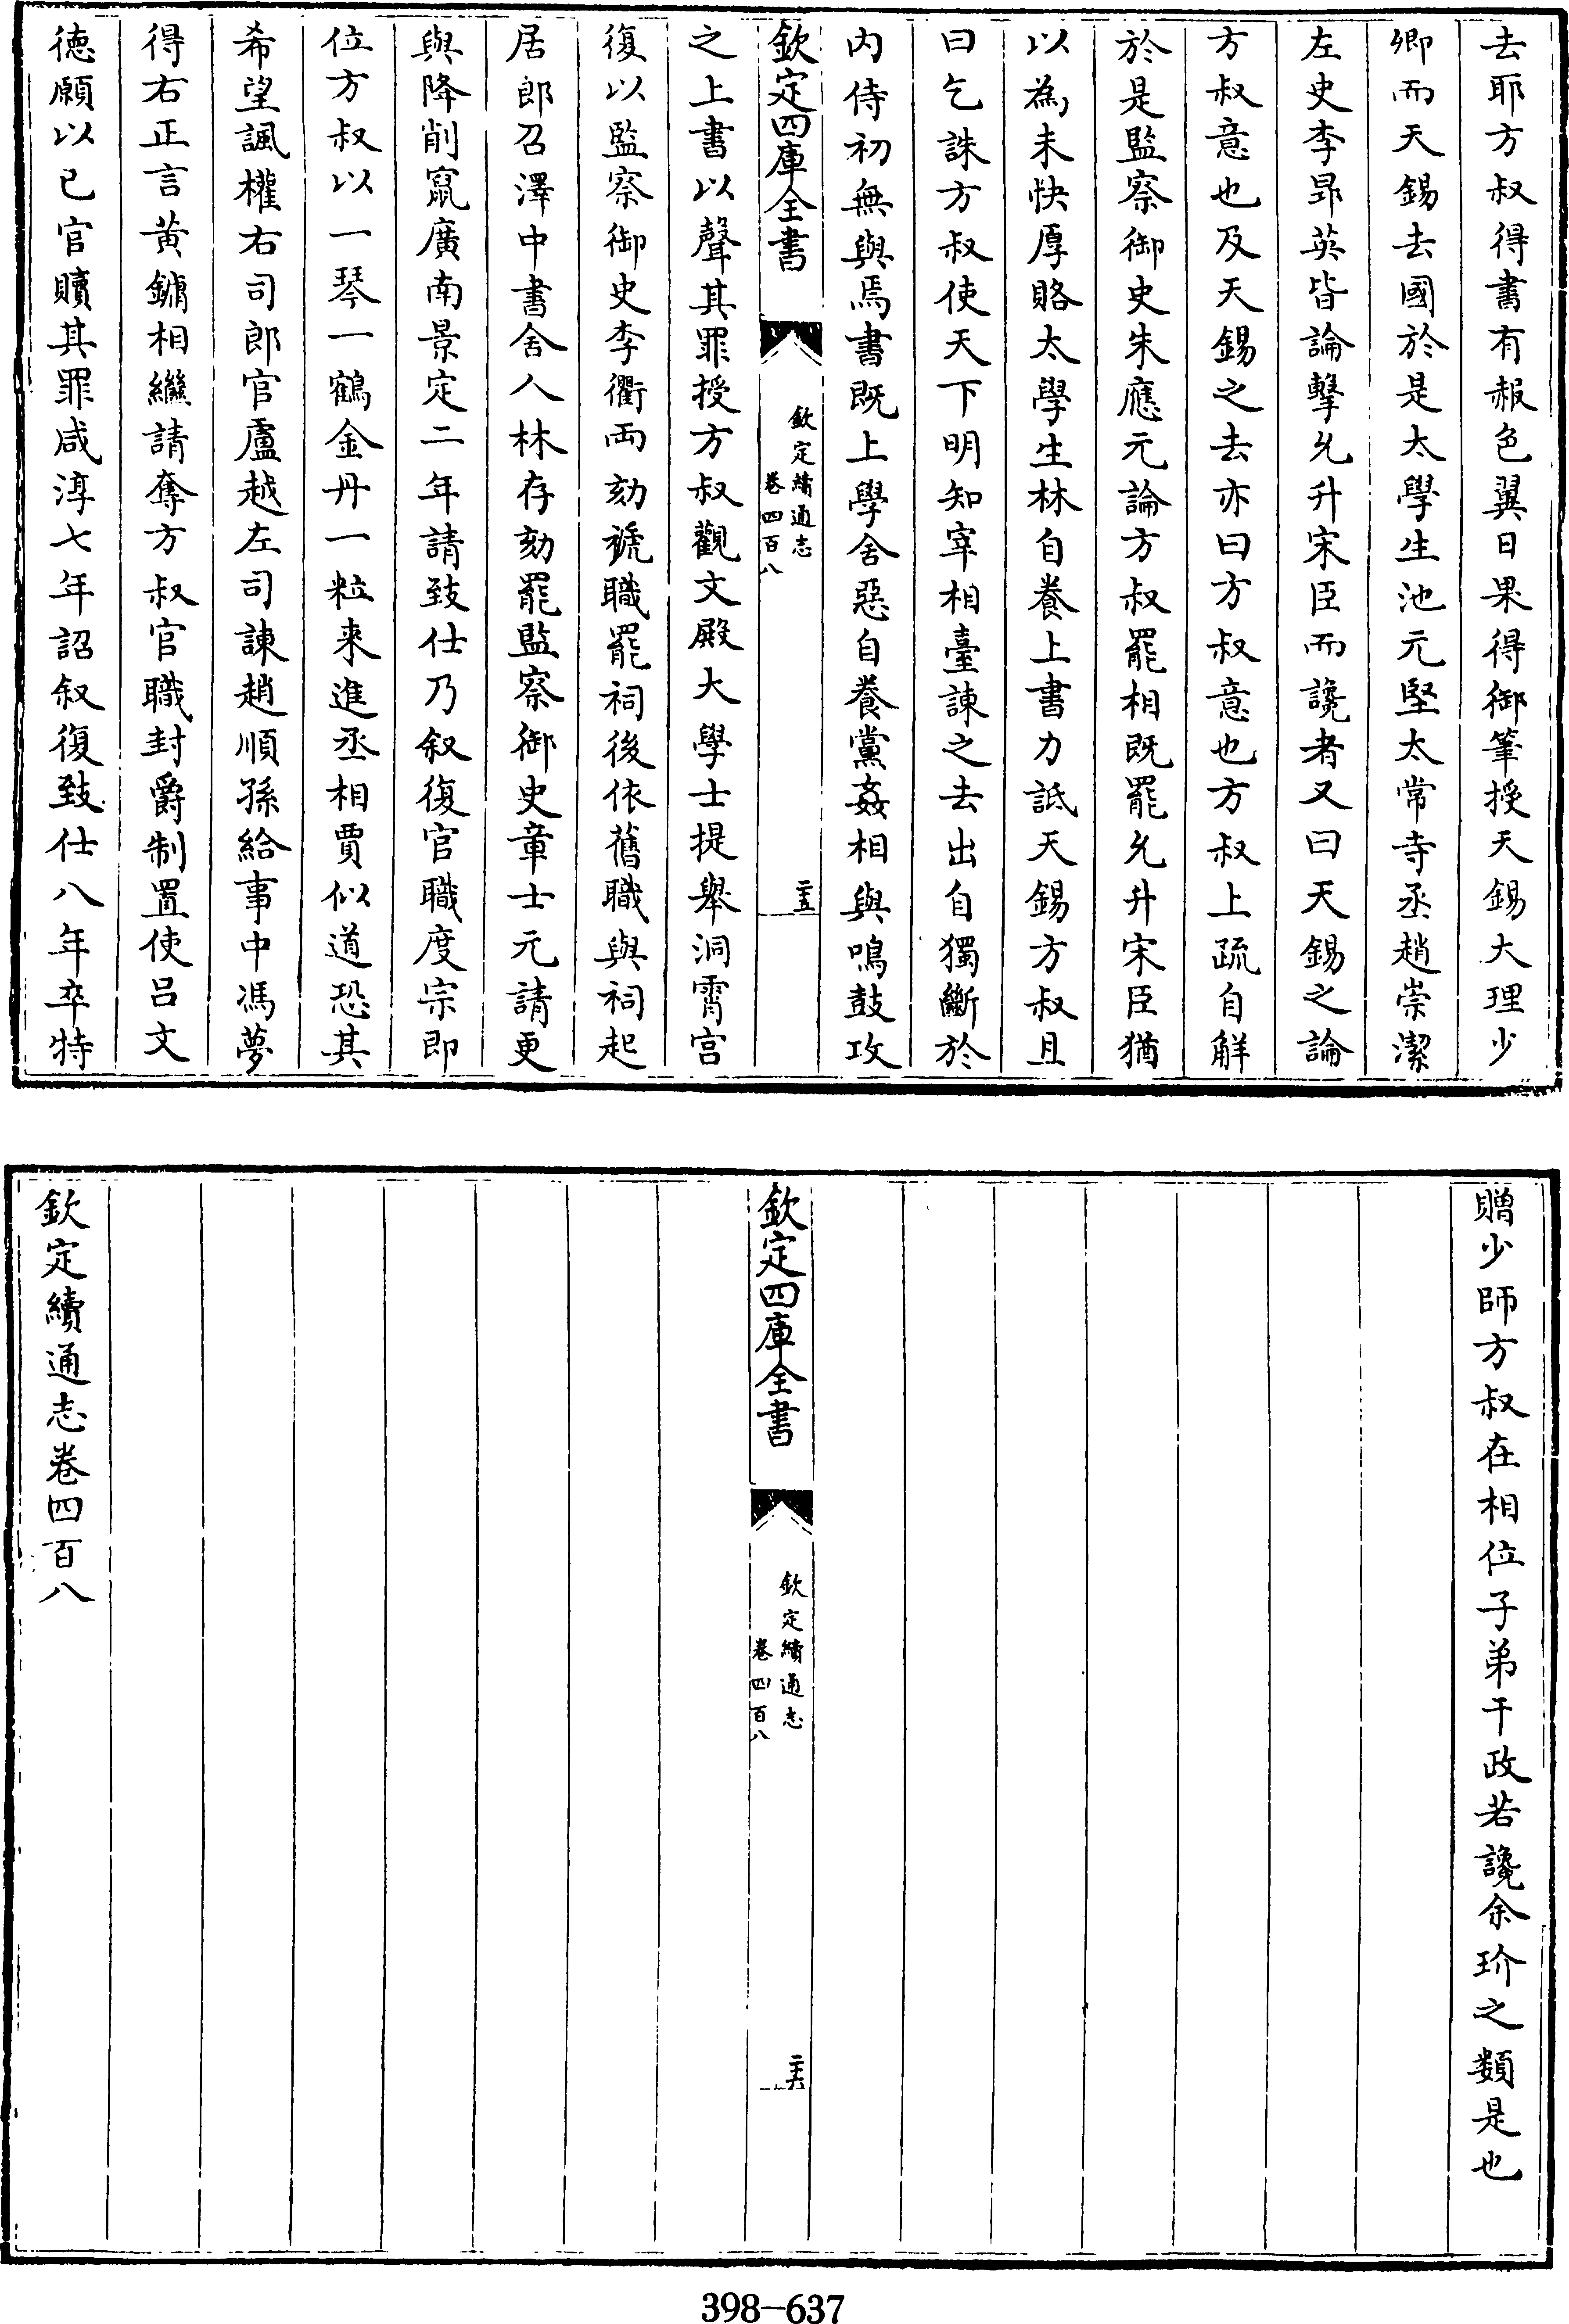 去耶方叔得書有赧色翼日果得御筆授天錫大理少
卿而天錫去國於是太學生池元堅太常寺丞趙崇潔
左史李昴英皆論擊允升宋臣而讒者又曰天錫之論
方叔意也及天錫之去亦曰方叔意也方叔上疏自解
於是監察御史朱應元論方叔罷相既罷允升宋臣猶
以為未快厚賂太學生林自養上書力詆天錫方叔且
曰乞誅方叔使天下明知宰相臺諫之去出自獨斷於
内侍初無與焉書既上學舍惡自養黨姦相與鳴鼓攻
欽定四庫全書
欽定續通志
卷四百八
二十五
之上書以聲其罪授方叔觀文殿大學士提舉洞霄宮
復以監察御史李衢両劾褫職罷祠後依舊職與祠起
居郎召澤中書舍人林存劾罷監察御史章士元請更
與降削竄廣南景定二年請致仕乃叙復官職度宗即
位方叔以一琴一鶴金丹一粒來進丞相賈似道恐其
希望諷權右司郎官盧越左司諫趙順孫給事中馮夢
得右正言黄鏞相繼請奪方叔官職封爵制置使呂文
徳願以已官贖其罪咸淳七年詔叙復致仕八年卒特
贈少師方叔在相位子弟干政若讒余玠之類是也
欽定四庫全書
欽定續通志
卷四百八
二十六
欽定續通志卷四百八
398-637